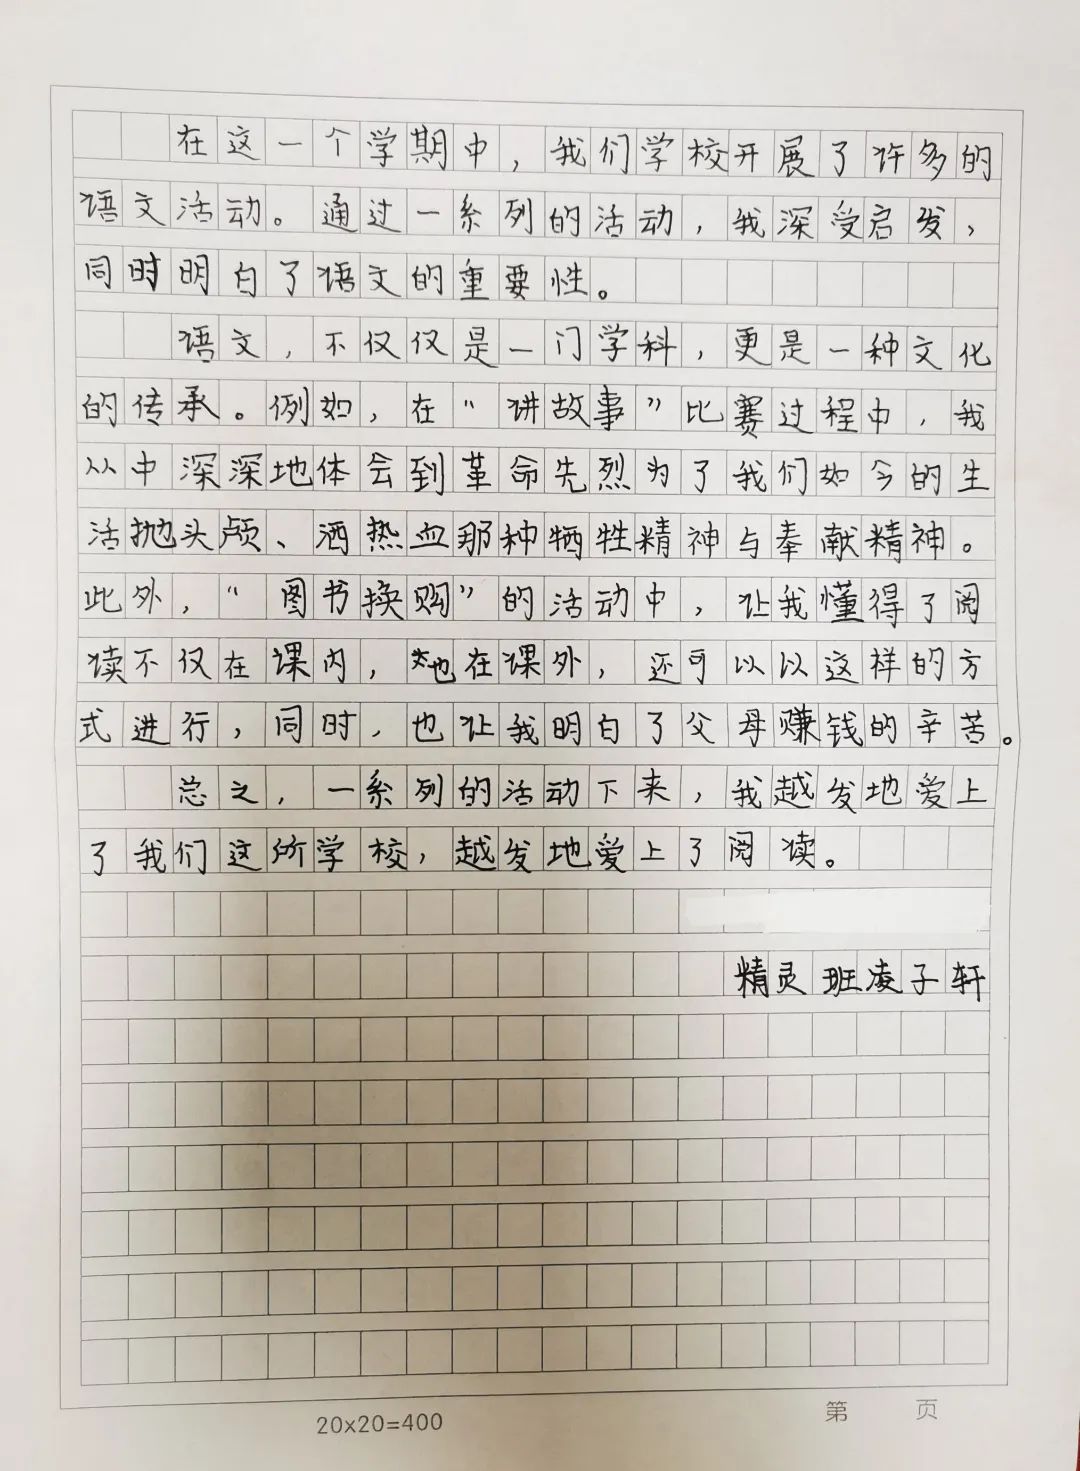 在这一个学期中，我们学校开展了许多的
语文活动。通过一系列的活动，我深受启发，
同时明白了语文的重要性。
语文，不仅仅是一门学科，更是一种文化
的传承。例如，在“讲故事”比赛过程中，我
从中深深地体会到革命先烈为了我们如今的生
活抛头颅、洒热血那种牺牲精神与奉献精神。
此外，“图书换购”的活动中，让我懂得了阅
读不仅在课内，也在课外，还可以以这样的方
式进行，同时，也让我明白了父母赚钱的辛苦。
总之，一系列的活动下来，我越发地爱上
了我们这所学校，越发地爱上了阅读。
精灵班凌子轩
20×20=400
第 页